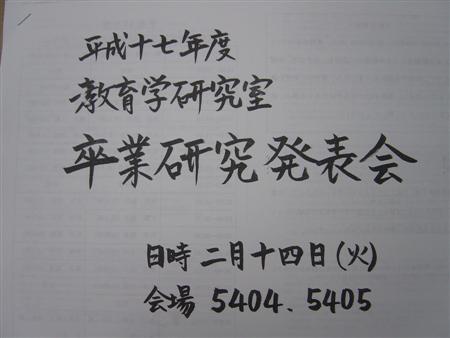 平成十七年度
教育学研究室
卒業研究発表会
日時 二月十四日(火)
会場 5404、5405